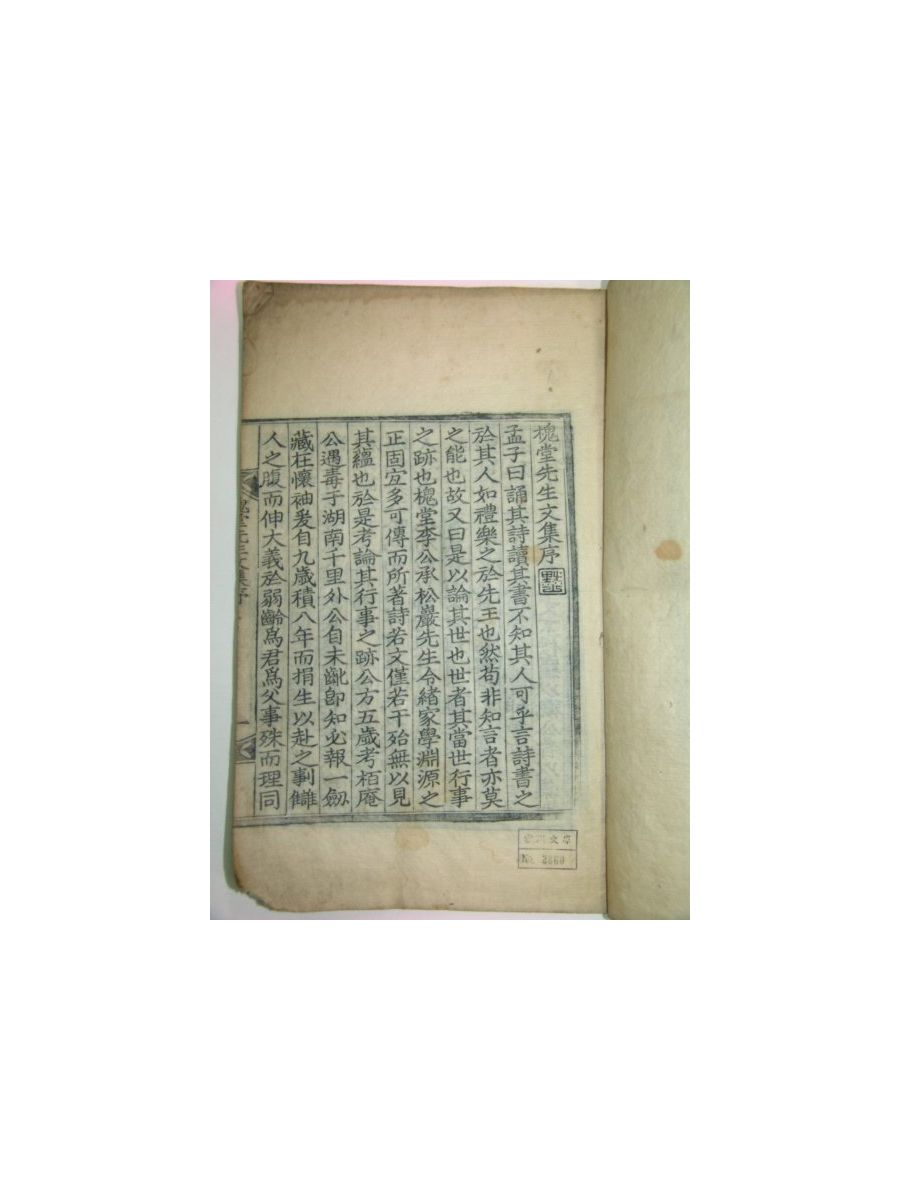 槐堂先生文集序
孟子曰誦其詩讀其書不知其人可乎言詩書之
於其人如禮樂之於先王也然苟非知言者亦莫
之能也故又曰是以論其世也世者其當世行事
之跡也槐堂李公承松巖先生令緖家學淵源之
正固宜多可傳而所著詩若文僅若干殆無以見
其蘊也於是考論其行事之跡公方五歲考栢庵
公遇毒于湖南千里外公自未齔卽知必報一劔
藏在懷袖爰自九歲積八年而捐生以赴之剚讎
人之腹而伸大義於弱齡爲君爲父事殊而理同
槐堂先生文集序
文庫
No. 2860